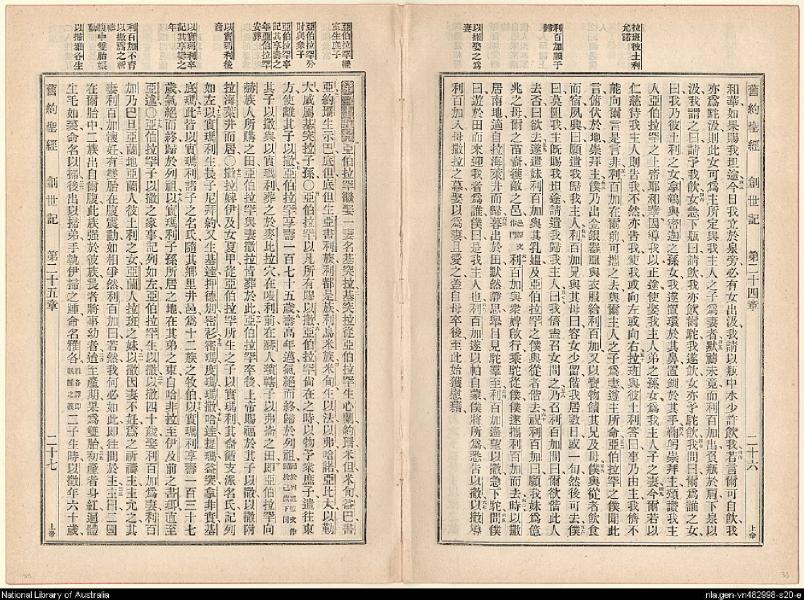 拉班彼土利允諾
利百加願于歸
以撒娶之爲妻
相華如果賜我坦途今日我立於泉旁必有女出汲我請以瓶中水少許飲我若言爾可自飲我
亦爲駝汲則此女可爲主所定與我主人之子爲妻者默禱未竟而利百加出負瓶於肩下泉以
汲我謂之曰請予我飲女急下瓶曰請飲我亦飲爾駝我遂飲女亦予駝飲我問曰爾爲誰之女
曰我乃彼土利之女拿鶴與密迦之孫女我遂置環於其鼻置釧於其手稽首崇拜主頌讚我主
人亞伯拉罕之上帝耶和華因導我以正途使娶我主人弟之孫女爲我主人子之妻今爾若以
仁慈待我主人則告我不然亦告我使我或向左或向右拉班與彼土利答曰事乃由主我儕不
能向爾言是言非利百加在爾前可攜之去與爾主人之子爲妻遵主所命亞伯拉罕之僕聞此
言俯伏於地崇拜主僕乃出金銀器皿與衣服給利百加又以寶物饋其兄及母僕與從者飲食
而宿夙興曰願遣我歸我主人利百加兄與其母曰容女少留偕我居數日或一旬然後可去僕
曰莫阻我主既賜我坦途請遣我歸我主人曰我儕盍召女問之乃召利百加問曰爾欲偕此人
去否曰欲去遂遣妹利百加與其乳媼及亞伯拉罕之僕與從者偕去祝利百加曰願我妹爲億
兆之母爾之苗裔獲敵之邑利百加與衆婢起行乘駝從僕僕遂攜利百加而去時以撒
居南地適自拉海萊井而歸暮出於田默然靜思舉目見駝羣至利百加遙望以撒急下駝問僕
曰遊於田而來迎我者爲誰僕曰是我主人也利百加遂以帕自蒙僕將所爲悉告以撒以撒導
利百加入母撒拉之幕娶以爲妻且愛之蓋自母卒後至此始獲慰藉
舊約聖經 創世記 第二十四章 二十六 上帝
亞伯拉罕娶基土拉生庶子
亞伯拉罕分財與衆子
亞伯拉罕卒記其享壽之年
亞伯拉罕安葬
以實瑪利後裔
以實瑪利卒記其享壽之年
利百加不育以撒爲之祈禱
腹中雙胎相爭
以掃雅各生
亞伯拉罕繼娶一妻名基突拉基突拉從亞伯拉罕生心蘭約珊米但米甸益巴書
亞約珊生示巴底但底但生亞書利族利都是族利烏米族米甸生以法以弗哈諾亞比大以勒
大咸屬基突拉子孫○亞伯拉罕以凡所有賜以撒亞伯拉罕尚在之時以物予衆庶子遣往東
方使離其子以撒亞伯拉罕享壽一百七十五歲壽高年邁氣絕而終歸於列祖
其子以撒與以實瑪利葬之於麥比拉穴在幔利前在赫人瑣轄子以弗崙之田即亞伯拉罕向
赫族人所購之田亞伯拉罕與妻撒拉皆葬於此亞伯拉罕卒後上帝賜福於其子以撒以撒附
拉海萊井而居○撒拉婢伊及女夏甲從亞伯拉罕所生之子以實瑪利其裔循支派名氏記列
如左以實瑪利生長子尼拜約又生基達押德別密衫密瑪度瑪瑪撒哈達提瑪益突拿非實基
底瑪此皆以實瑪利諸子之名氏隨其鄉里井邑爲十二族之牧伯以實瑪利享壽一百三十七
歲氣絕而終歸於列祖以實瑪利子孫所居之地在其弟之東自哈非拉至伊及前之書珥直至
亞述○亞伯拉罕子以撒之家乘記列如左亞伯拉罕生以撒以撒四十歲娶利百加爲妻利百
加乃巴旦亞蘭地亞蘭人彼土利之女亞蘭人拉班之妹以撒因妻不妊爲之祈禱主主允之其
妻利百加懷妊有雙胎在腹震動如相爭然利百加曰若然我何必如此即往問於主主曰二國
在爾胎中二族出自爾腹此族强於彼族長者將事幼者逮至產期果爲雙胎初產者身紅遍體
生毛如裘命名以掃後出以掃弟手執伊掃之踵命名雅各二子生時以撒年六十歲
舊約聖經 創世記 第二十五章 二十七 上帝
National Library of Australia
nla.gen-vn482998-s20-e